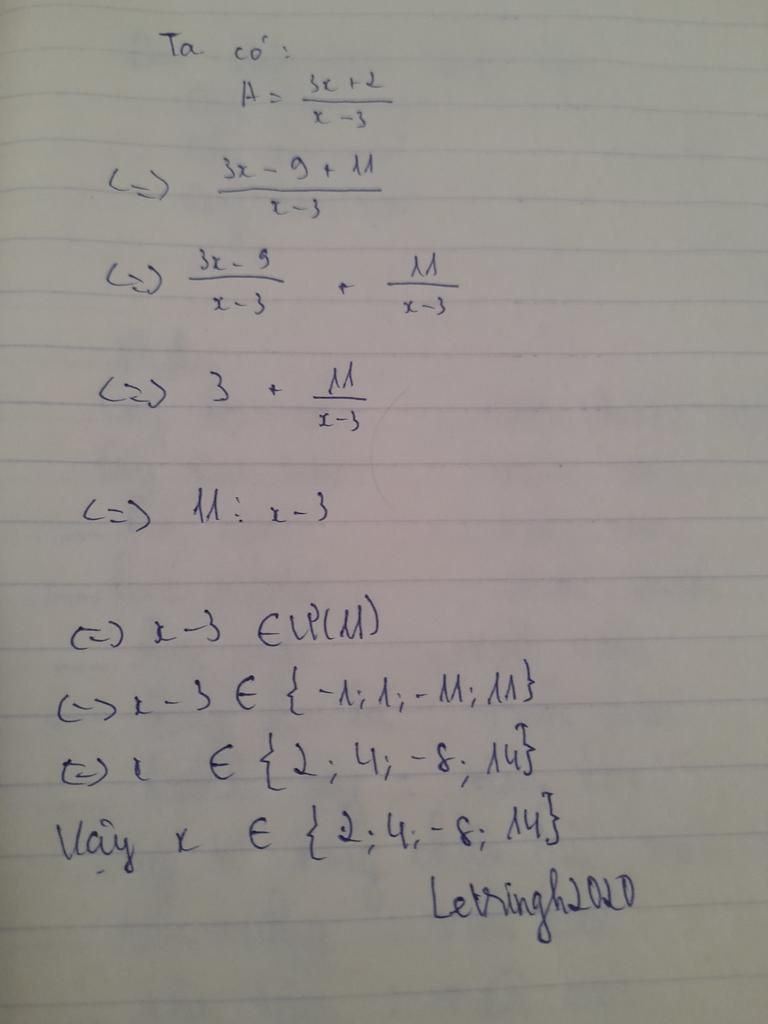 Ta có:
A = \frac{3x+2}{x-3}
<=> \frac{3x-9+11}{x-3}
<=> \frac{3x-9}{x-3} + \frac{11}{x-3}
<=> 3 + \frac{11}{x-3}
<=> 11 ⋮ x-3
<=> x-3 ∈ Ư(11)
<=> x-3 ∈ {-1; 1; -11; 11}
<=> x ∈ {2; 4; -8; 14}
Vậy x ∈ {2; 4; -8; 14}
Letsingh2020